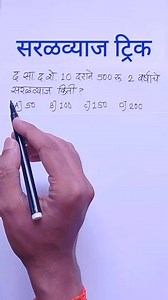 सरळव्याज ट्रिक
द सा द शे 10 दराने 500 रू 2 वर्षाचे
सरळव्याज किती?
A) 50 B) 100 C) 150 D) 200